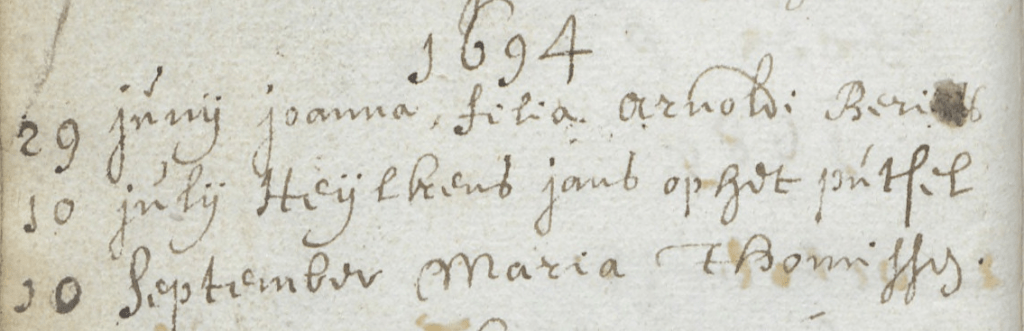 1694
29 junij joanna, filia. Arnoldi
10 julij Heijlkens jans op het putsel
10 september Maria Thomissen.